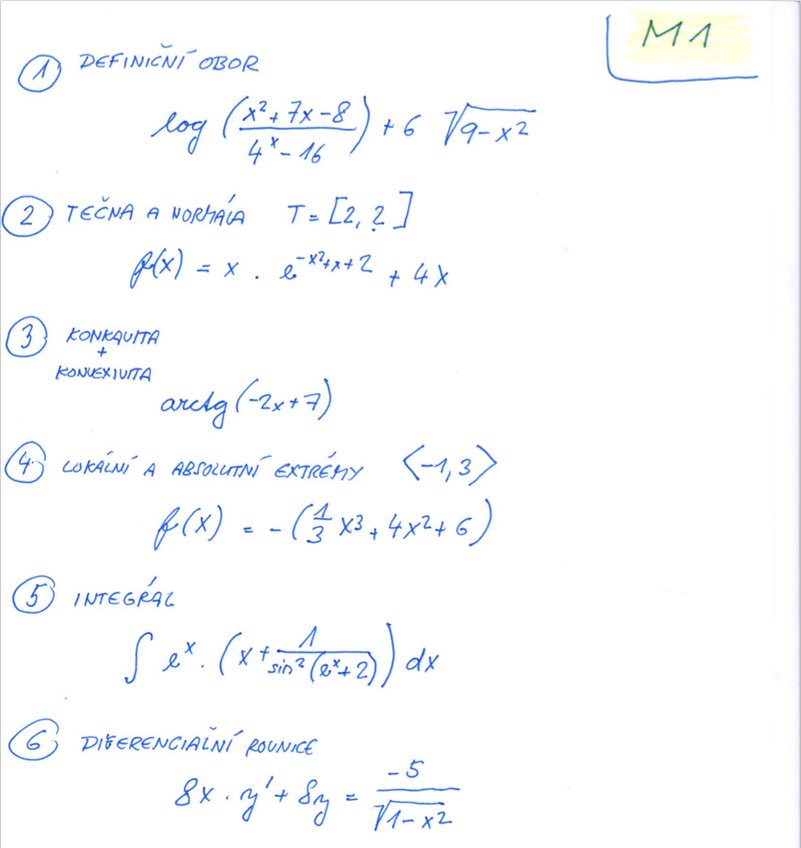 M1
1 DEFINIČNÍ OBOR
log ( (x² + 7x - 8) / (4ˣ - 16) ) + 6 √(9 - x²)
2 TEČNA A NORMÁLA T = [2, ?]
f(x) = x · e^(-x²+x+2) + 4x
3 KONKAVITA
+
KONVEXIVITA
arctg (-2x + 7)
4 LOKÁLNÍ A ABSOLUTNÍ EXTRÉMY ⟨-1, 3⟩
f(x) = - (1/3 x³ + 4x² + 6)
5 INTEGRÁL
∫ eˣ · (x + 1 / sin² (eˣ + 2)) dx
6 DIFERENCIALNÍ ROVNICE
8x · y' + 8y = -5 / √(1 - x²)